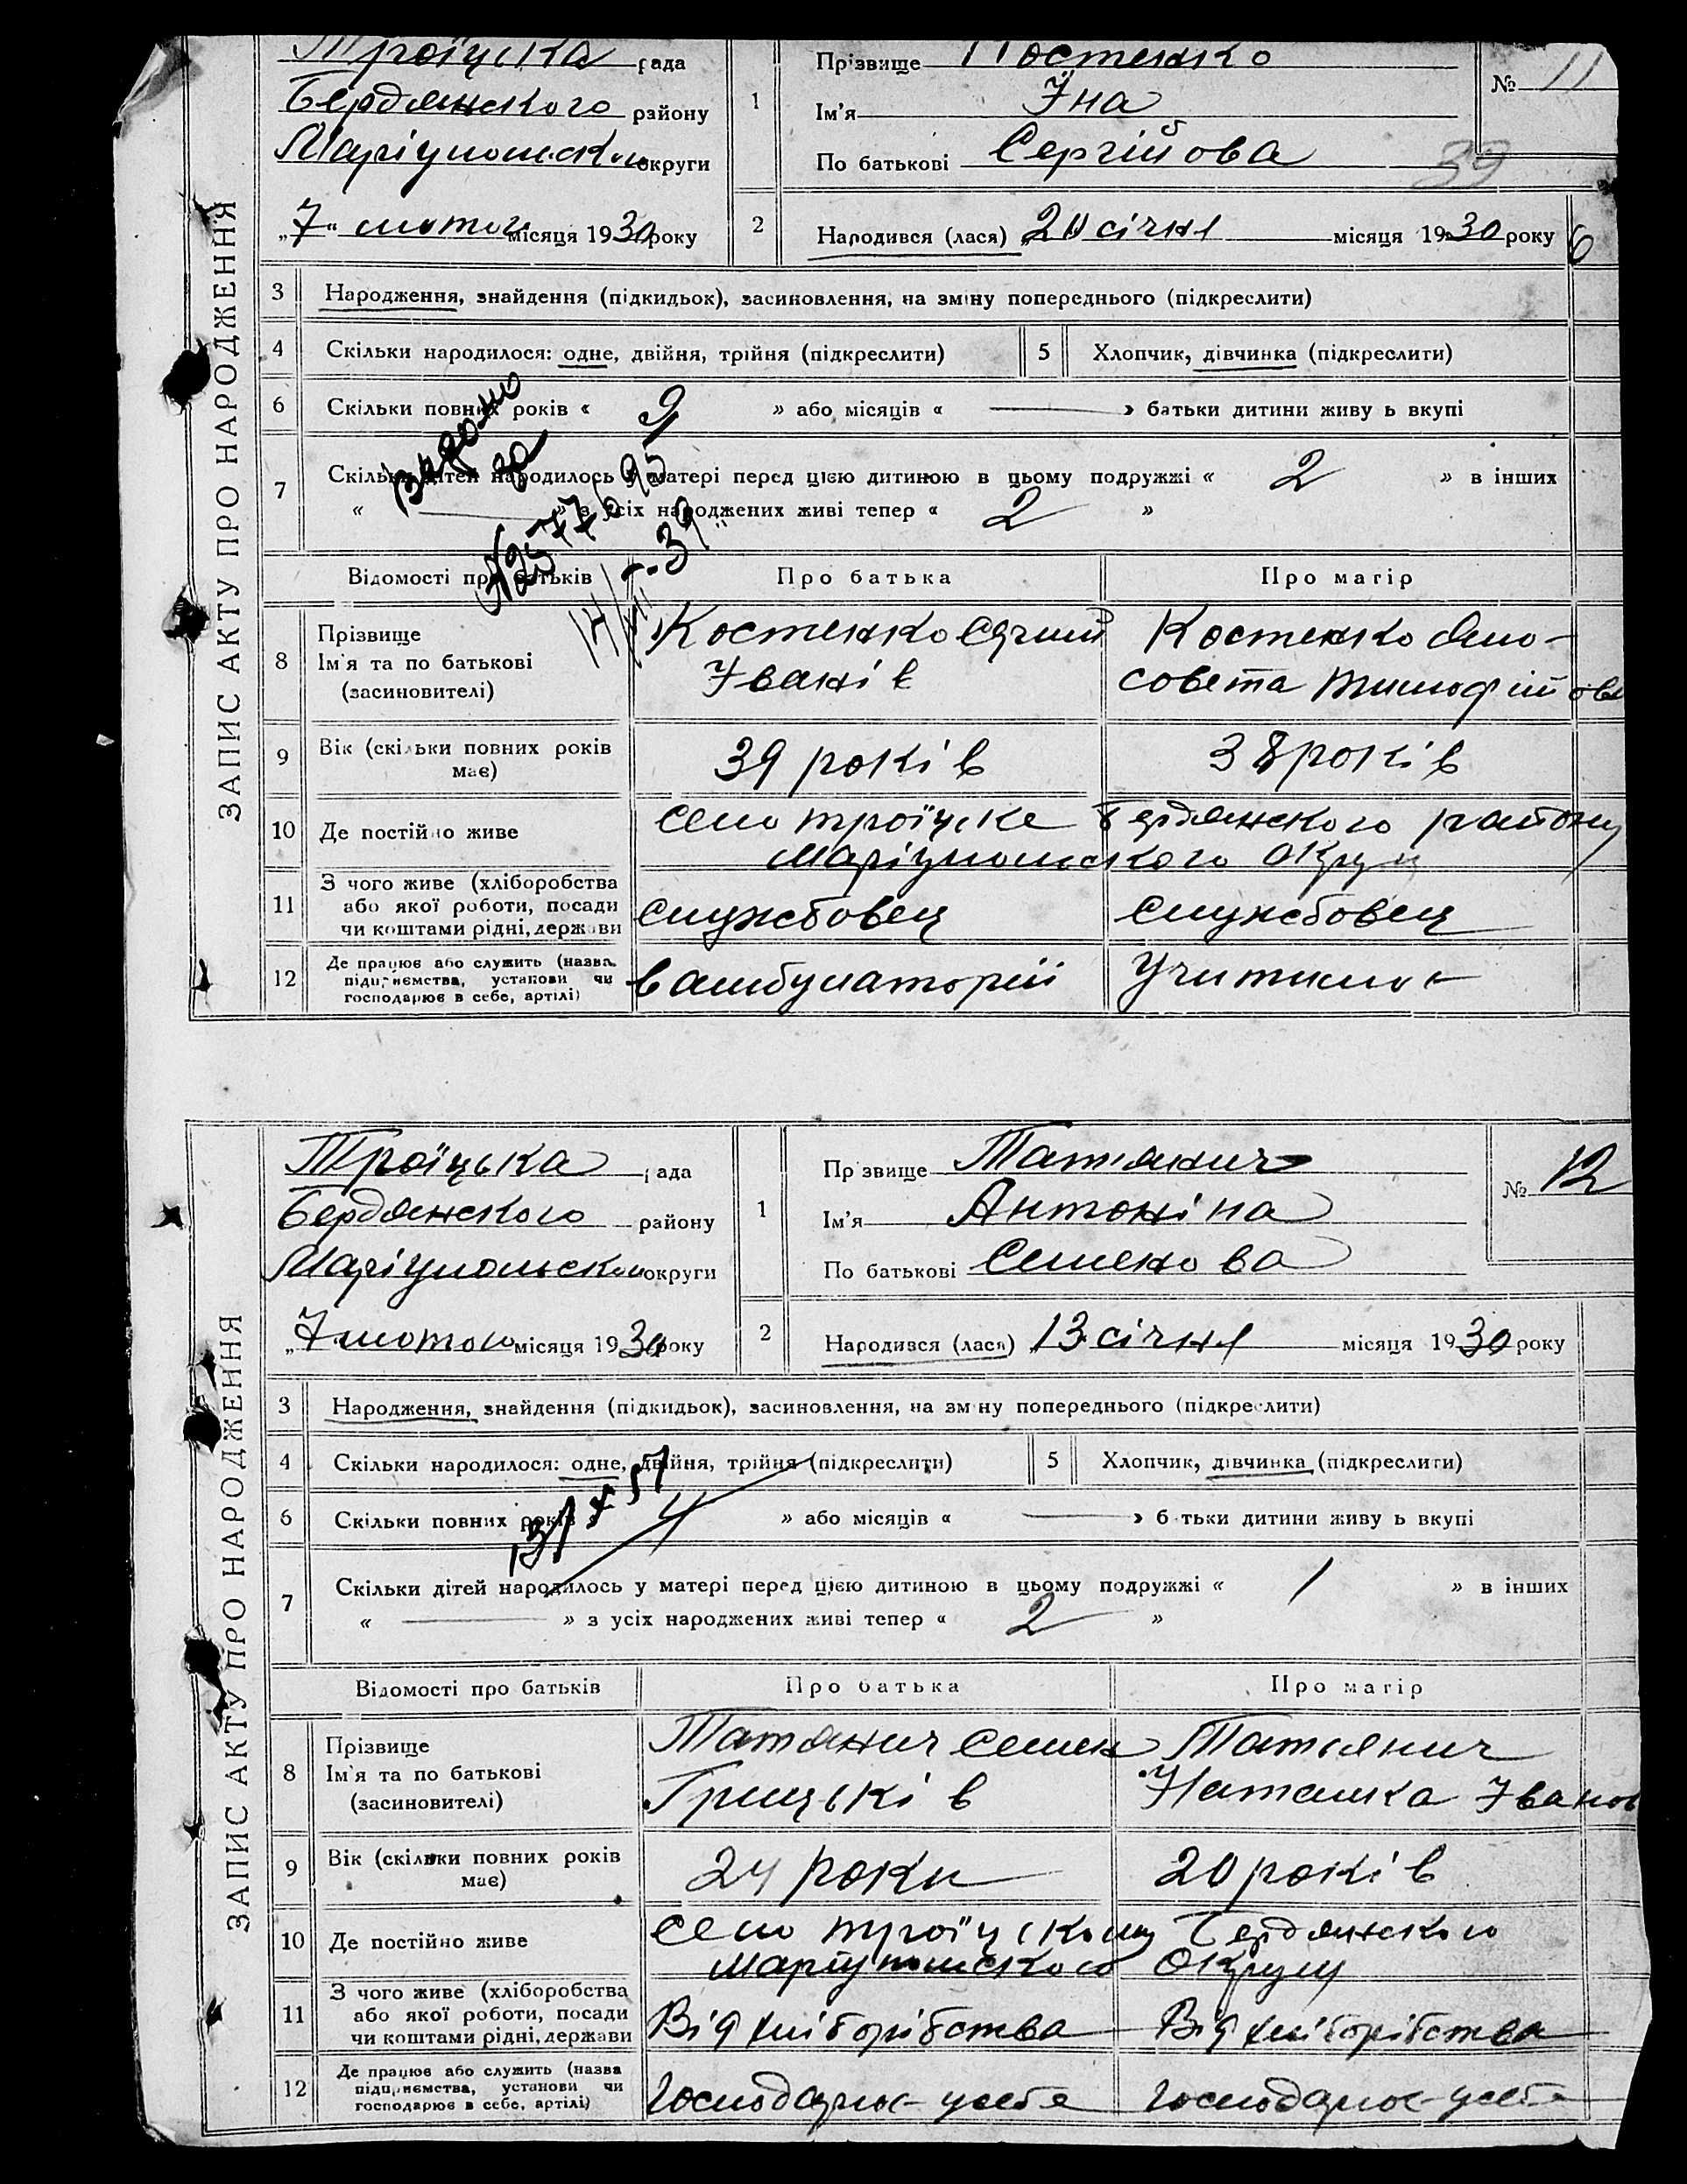 ЗАПИС АКТУ ПРО НАРОДЖЕННЯ
Троїцька рада
Бердянського району
Маріупольск округи
„7“ лютого місяця 1930 року
1 Прізвище Костенко
Ім'я Їна
По батькові Сергійова
№ 11
39
2 Народився (лася) „20 січня місяця 1930 року
6
3 Народження, знайдення (підкидьок), засиновлення, на зміну попереднього (підкреслити)
4 Скільки народилося: одне, двійня, трійня (підкреслити) 5 Хлопчик, дівчинка (підкреслити)
6 Скільки повних років « 9 » або місяців « — » батьки дитини живуть вкупі
7 Скільки дітей народилось у матері перед цією дитиною в цьому подружжі « 2 » в інших
« — » з усіх народжених живі тепер « 2 »
Відомості про батьків Про батька Про матір
8 Прізвище
Ім'я та по батькові
(засиновителі)
Костенко
Їванів
Костенко
Тимофійова
9 Вік (скільки повних років
має)
39 років 38 років
10 Де постійно живе
село троїцьке Бердянського району
Маріупольського округи
11 З чого живе (хліборобства
або якої роботи, посади
чи коштами рідні, держави
службовец службовец
12 Де працює або служить (назва
підприємства, установи чи
господарює в себе, артілі)
в амбулаторії
ЗАПИС АКТУ ПРО НАРОДЖЕННЯ
Троїцька рада
Бердянського району
Маріупольск округи
„7 лютого місяця 1930 року
1 Прізвище Татьянич
Ім'я Антоніна
По батькові Семенова
№ 12
2 Народився (лася) „13 січня місяця 1930 року
3 Народження, знайдення (підкидьок), засиновлення, на зміну попереднього (підкреслити)
4 Скільки народилося: одне, двійня, трійня (підкреслити) 5 Хлопчик, дівчинка (підкреслити)
6 Скільки повних років « 4 » або місяців « — » батьки дитини живуть вкупі
7 Скільки дітей народилось у матері перед цією дитиною в цьому подружжі « 1 » в інших
« — » з усіх народжених живі тепер « 2 »
Відомості про батьків Про батька Про матір
8 Прізвище
Ім'я та по батькові
(засиновителі)
Татянич Семен
Грицьків
Татьянич
Наталка Їванов
9 Вік (скільки повних років
має)
24 роки 20 років
10 Де постійно живе
село троїцькому Бердянського
Маріупольського округу
11 З чого живе (хліборобства
або якої роботи, посади
чи коштами рідні, держави
Від хліборібства Від хліборібства
12 Де працює або служить (назва
підприємства, установи чи
господарює в себе, артілі)
Господарює усебе Господарює усебе